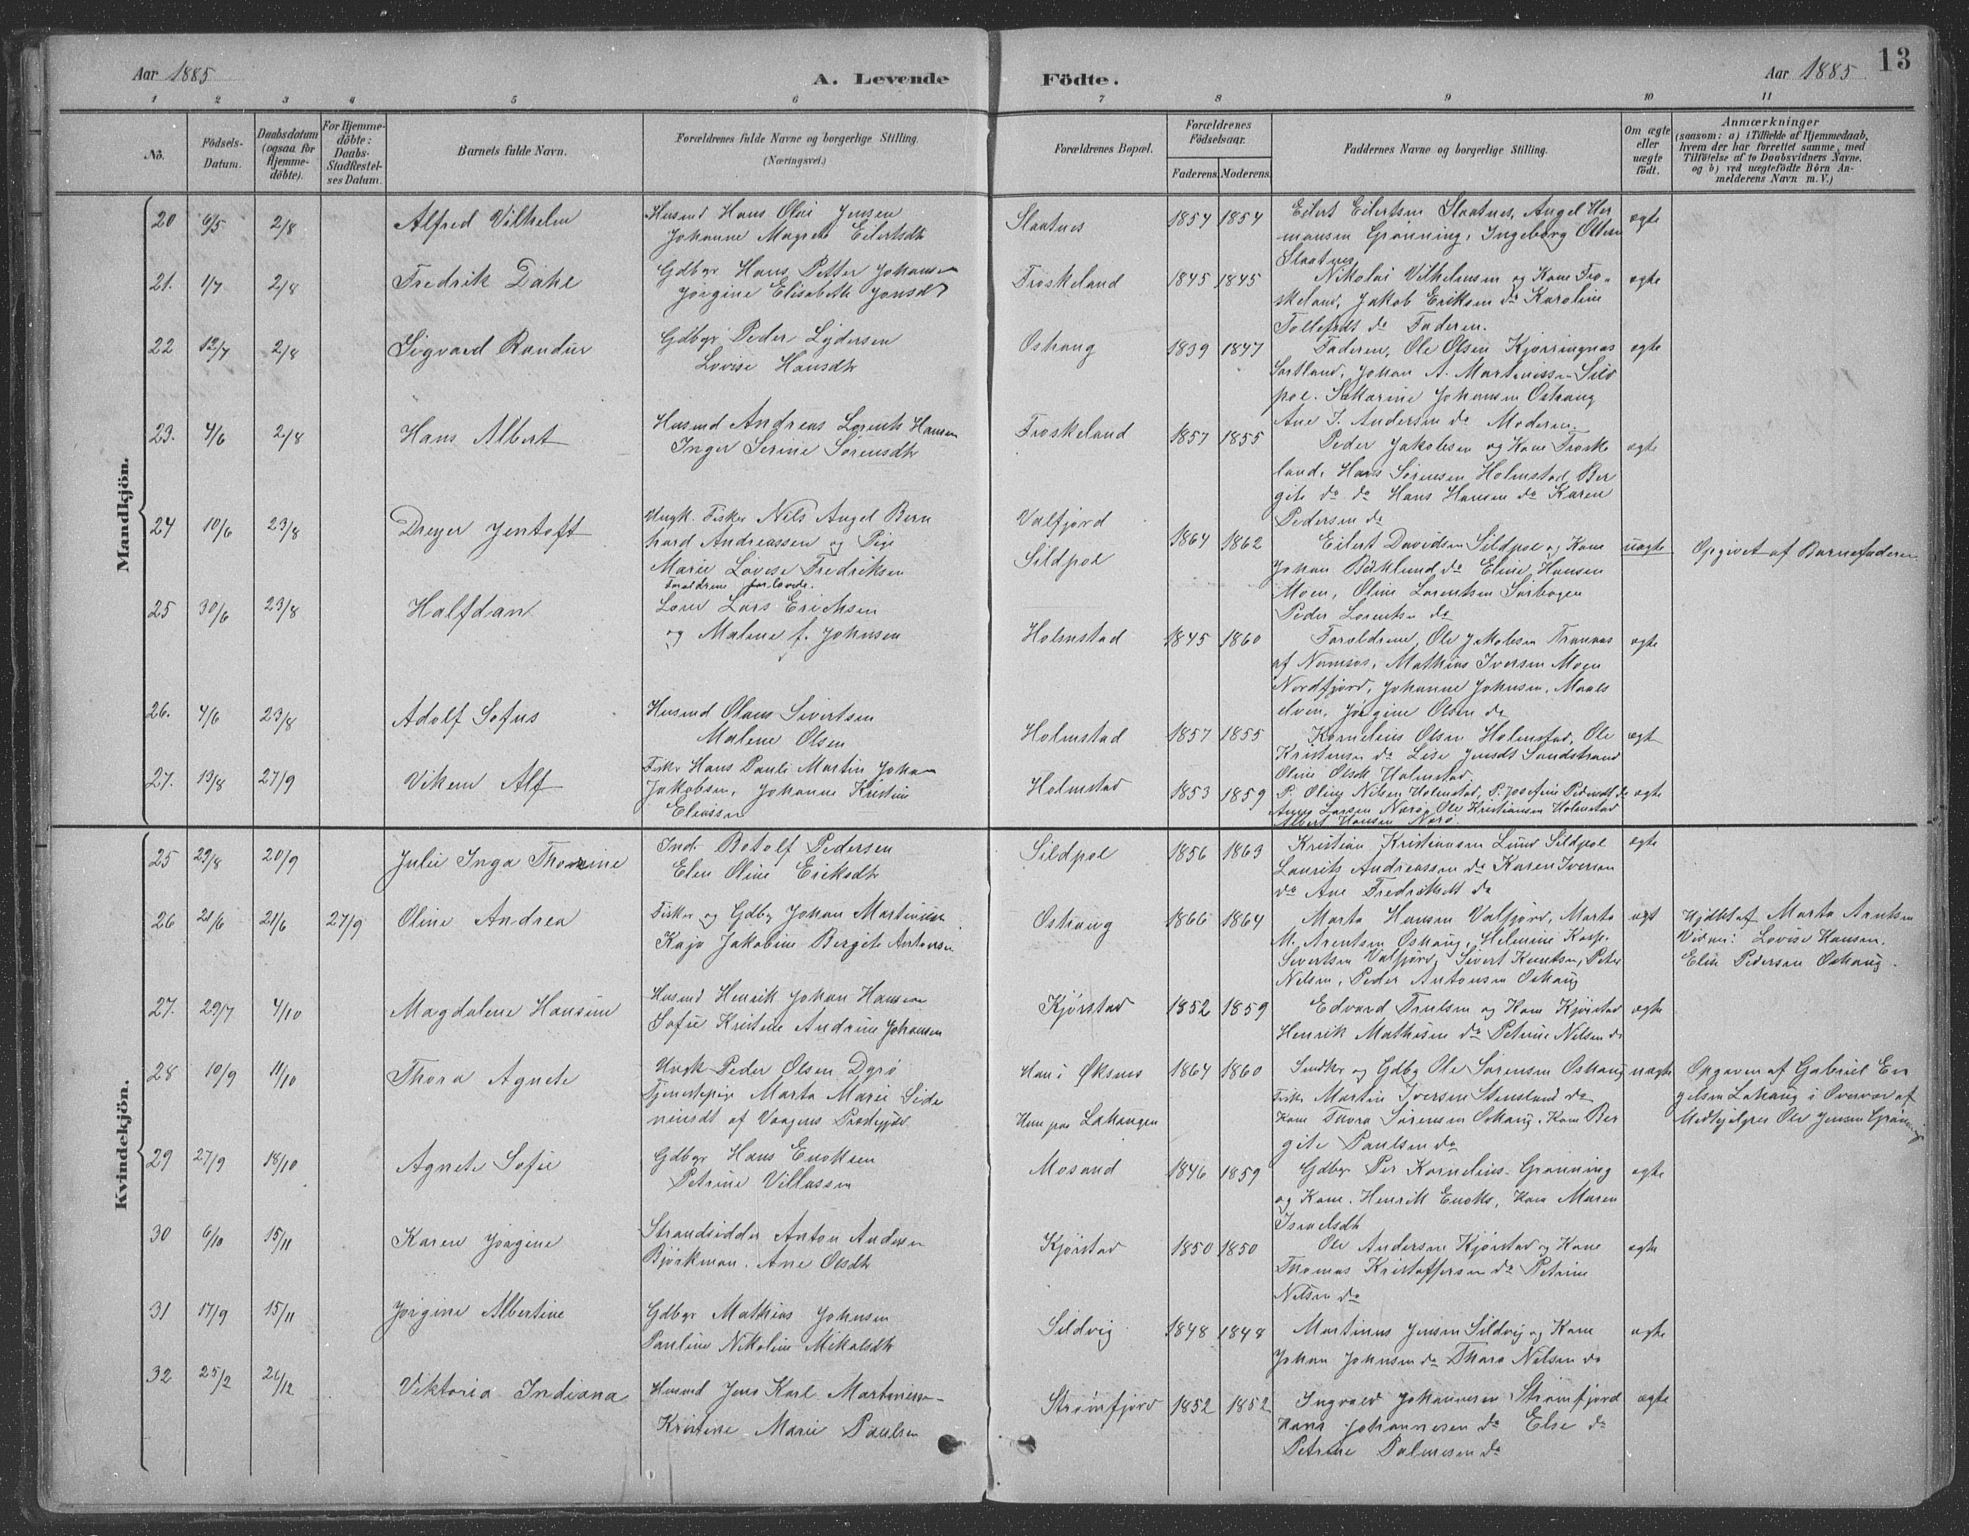 Aar 1885
A. Levende
Födte.
Aar 1885
13
1 2 3 4 5 6 7 8 9 10 11
No.
Födsels-
Datum.
Daabsdatum
(ogsaa for
Hjemme-
döbte).
For Hjemme-
döbte:
Daabs-
Stadfæstel-
ses Datum.
Barnets fulde Navn.
Forældrenes fulde Navne og borgerlige Stilling.
(Næringsvei.)
Forældrenes Bopæl.
Forældrenes
Födselsaar.
Faderens. Moderens.
Faddernes Navne og borgerlige Stilling.
Om ægte
eller
uægte
födt.
Anmærkninger
(saasom: a) i Tilfælde af Hjemmedaab,
hvem der har forrettet samme, med
Tilföielse af to Daabsvidners Navne,
og b) ved uægtefödte Börn An-
melderens Navn m. V.)
Mandkjön.
20 6/5 2/8 Alfred Vilhelm
Husmd Hans Olai Jensen
Johanne Magrete Eilertsdtr
Slaatnes 1854 1854
Eilert Eilertsen Slaatnes, Angel Her
mansen Grönning, Ingeborg Ottesen
Slaatnes
ægte
21. 1/7 2/8 Fredrik Dahl
Gdbgr Hans Petter Johansen
Jörgine Elisabeth Jonsdt
Froskeland 1845 1845
Nikolai Vilhelmsen og Kone Fro-
skeland, Jakob Eriksen do Karoline
Tollefsdt do Faderen.
ægte
22 12/7 2/8 Sigvard Randur
Gdbgr Peder Lydersen
Lovise Hansdtr
Oshaug 1839 1847
Faderen, Ole Olsen Kjørringnes
Sortland, Johan A. Martinussen Sild
pol. Sakarine Johansen Oshaug
Ane J. Andersen do Moderen.
ægte
23. 4/6 2/8 Hans Albert
Husmd Andreas Lorents Hansen
Inger Serine Sørensdtr
Froskeland 1857 1855
Peder Jakobsen og Kone Froske
land, Hans Sørensen Holmstad Ber
gite do do Hans Hansen do Karen
Pedersen do
ægte
24 10/6 23/8 Dreyer Jentoft
Ungk. Fisker Nils Angel Bern
hard Andreassen og Pige
Marie Lovise Fredriksen
Forældrene forlovede.
Valfjord
Sildpol
1864 1862
Eilert Davidsen Sildpol og Kone
Johan Bäklund do Eline Hansen
Moen, Oline Lorentsen Sørbogen
Peder Lorentsen do
uægte
Opgivet af Barnefaderen
25 30/6 23/8 Halfdan
Lars Erichsen
og Malene f. Johnsen
Holmstad 1845 1860
Forældrene, Ole Jakobsen Trannes
af Namsos, Mathias Iversen Moen
Nordfjord, Johanne Johnsen, Maals
elven, Jörgine Olsen do
ægte
26. 4/6 23/8 Adolf Sofus
Husmd Olaus Sivertsen
Malene Olsen
Holmstad 1857 1855
Kornelius Olsen Holmstad, Ole
Kristensen do Lise Jensdt Sandstrand
Oline Olsdt Holmstad
ægt
27. 13/8 27/9 Viken Alf
Fisker Hans Pauli Martin Johan
Jakobsen, Johanne Kristine
Eliassen
Holmstad 1853 1859
P. Oline Nilsen Holmstad, P. Josefine Pedersdt do
Anne Larsen Norö, Ole Kristiansen Holmstad
Albert Hansen Norö.
ægte
Kvindekjön.
25 29/8 20/9 Julie Inga Thorine
Ind. Botolf Pedersen
Elen Oline Eriksdtr
Sildpol 1856 1863
Kristian Kristiansen Lund Sildpol
Laurits Andreassen do Karen Iversen
do Ane Fredriksdt do
ægte
26 21/6 21/6 27/9 Oline Andrea
Fisker og Gdbgr Johan Martinus
Kaja Jakobine Bergite Antonsen
Oshaug 1866 1864
Marta Hansen Valfjord, Marta
M. Arentsen Oshaug, Helmine Korp.
Sivertsen Valfjord, Sivert Knutsen, Peter
Nilsen, Peder Antonsen Oshaug
ægt
Hjdbt af Marta Arntsen
Vidner: Lovise Hansen.
Elise Pedersen Oshaug.
27. 29/7 4/10 Magdalene Hansine
Husmd Henrik Johan Hansen
Sofie Kristine Andrine Johansen
Kjørstad 1852 1859
Edvard Trulsen og Kone Kjørstad
Henrik Mathisen do Petrine Nilsen do
ægte
28 10/9 11/10 Thora Agnete
Ungk Peder Olsen Dyrö
Tjenestepige Marta Marie Sido
niusdt af Vaagens Præstegjæld
Han i Øksnes
Hun paa Lahaugen
1864 1860
Smdkr og Gdbgr Ole Sørensen Oshaug
Fisker Martin Iversen Stensland do
Kone Thora Sørensen Oshaug, Kone Ber
gite Paulsen do
uægte
Opgaven af Gabriel En
gelsen Lahaug i Overvær af
Medhjelper Ole Jensen Grønning
29 27/9 18/10 Agnete Sofie
Gdbgr Hans Enoksen
Petrine Villassen
Mosand 1846 1859
Gdbgr Per Kornelius. Grønning
og Kone. Henrik Enoks, Kone Maren
Israelsdtr
ægte
30 6/10 15/11 Karen Jörgine
Strandsidder Anton Andersen
Björkman. Ane Olsdtr
Kjørstad 1850 1850
Ole Andersen Kjørstad og Kone
Thomas Kristoffersen do Petrine
Nilsen do
ægte
31 17/9 15/11 Jörgine Albertine
Gdbgr Mathias Johnsen
Pauline Nikoline Mikalsdtr
Sildvig 1848 1848
Martinus Jensen Sildvig og Kone
Johan Johnsen do Thora Nilsen do
ægte
32 25/2 26/12 Viktoria Indiana
Husmd Jens Karl Martinussen
Kristine Marie Paulsen
Strømfjord 1852 1852
Ingvald Johannesen Strømfjord
Hans Johannesen do Else do
Petrine Palmesen do
ægte